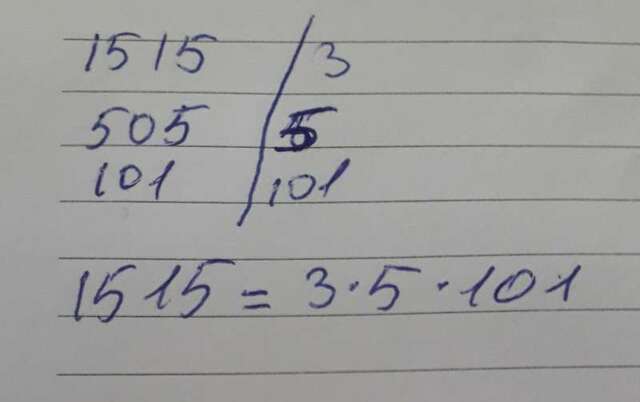 1515 / 3
505 / 5
101 / 101
1515 = 3·5·101